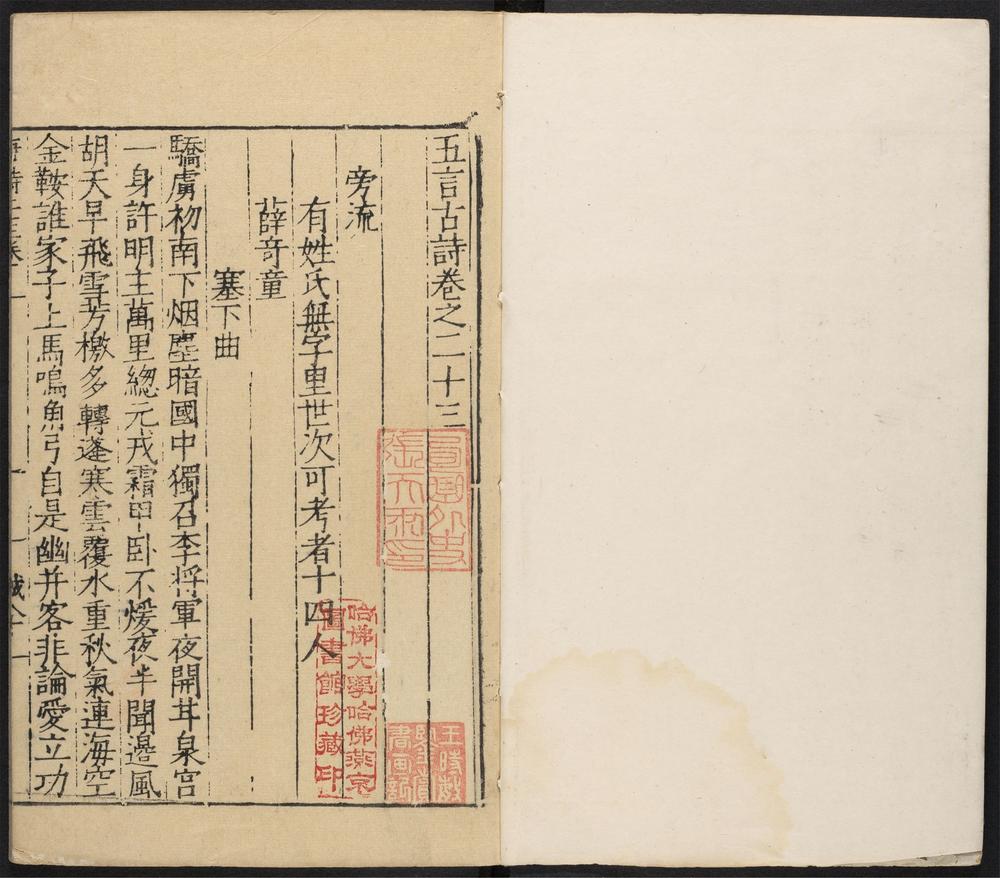 五言古詩卷之二十三
旁流
有姓氏無字里世次可考者十四人
薛奇童
塞下曲
驕虜初南下烟塵暗國中獨召李將軍夜開甘泉宫
一身許明主萬里總元戎霜甲卧不煖夜半聞邊風
胡天早飛雪荒檄多轉蓬寒雲覆水重秋氣連海空
金鞍誰家子上馬鳴角弓自是幽并客非論愛立功
哈佛大學哈佛燕京
圖書館珍藏印
王時敏
書画記